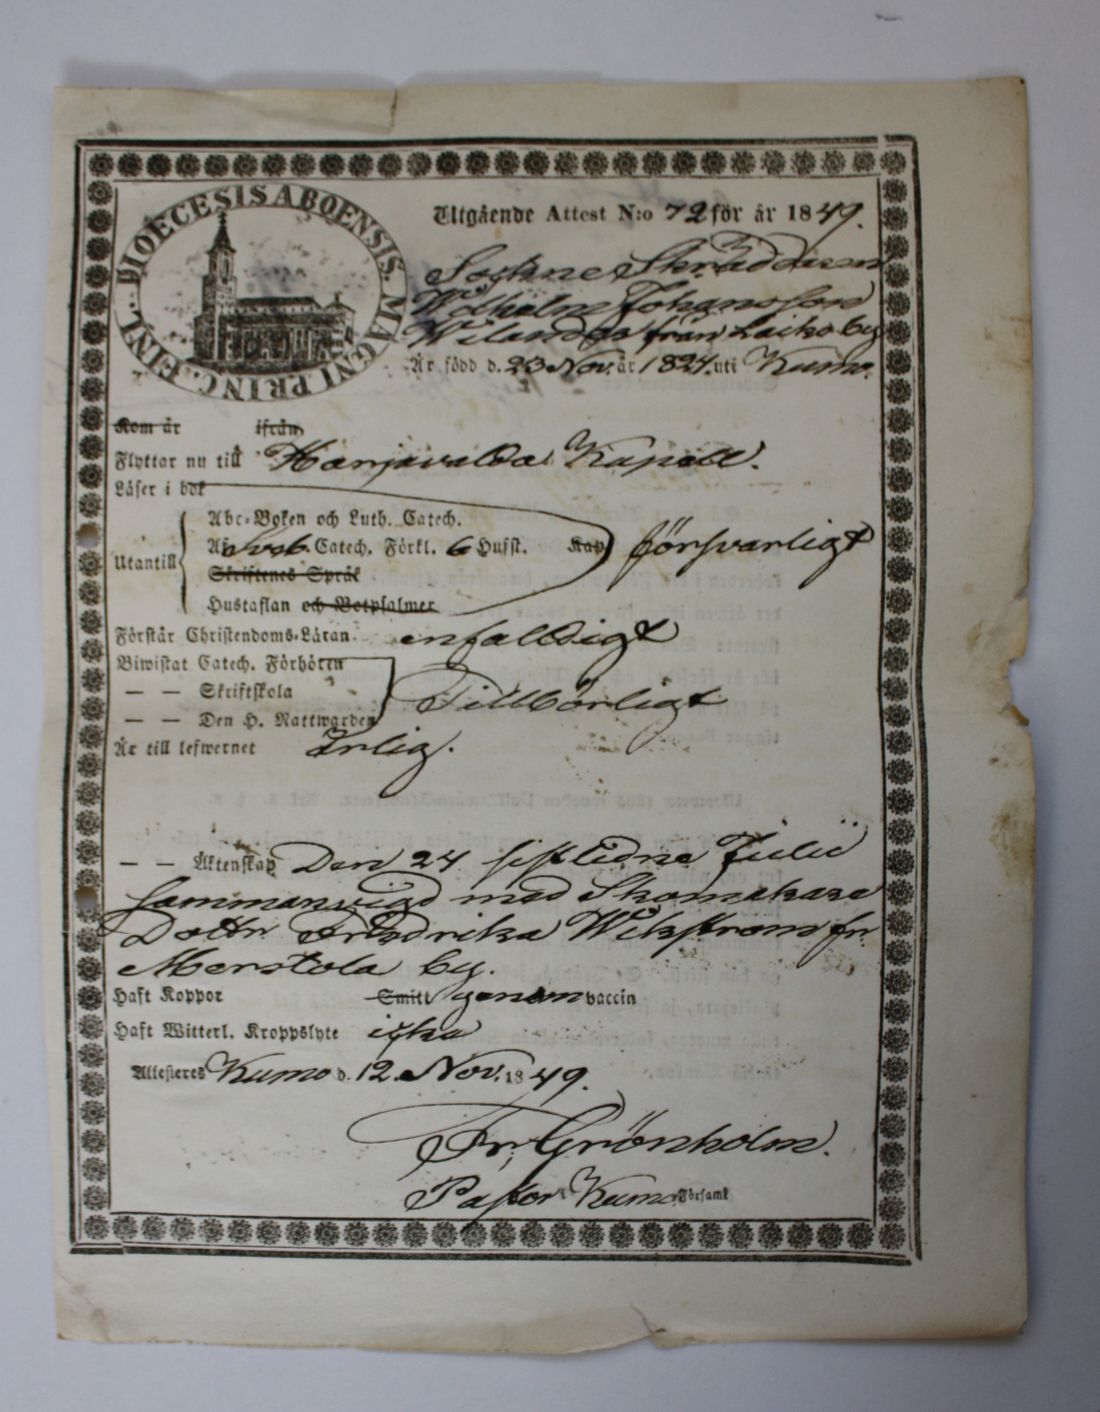 DIOECESIS ABOENSIS. MAGNI PRINC. FINL.
Utgående Attest N:o 72 för år 1849.
Sockne Skräddaren
Wilhelm Johansson
Wilander från Laiko by
Är född d. 23 Nov. år 1824. uti Kumo.
Kom år ifrån
Flyttar nu till Harjavalda Kapell.
Läser i bok
Abc-Boken och Luth. Catech.
Utantill Catech. Förkl. 6 Husst. Kap. försvarligt
Skriftenes Språk
Hustaflan och Botpsalmer
Förstår Christendoms-Läran enfalldigt
Biwistat Catech. Förhören
— — Skriftskola Tillbörligt
— — Den H. Nattwarden
Är till lefwernet Ärlig.
— — Äktenskap Den 24 sistledne Julii
sammanvigd med Skomakare
Dottr Fredrika Wikström fr.
Merstola by.
Haft Koppor Smitt genom vaccin
Haft Witterl. Kroppslyte icka
Attesteres Kumo d. 12. Nov. 1849.
Fr. Grönholm.
Pastor i Kumo Församl